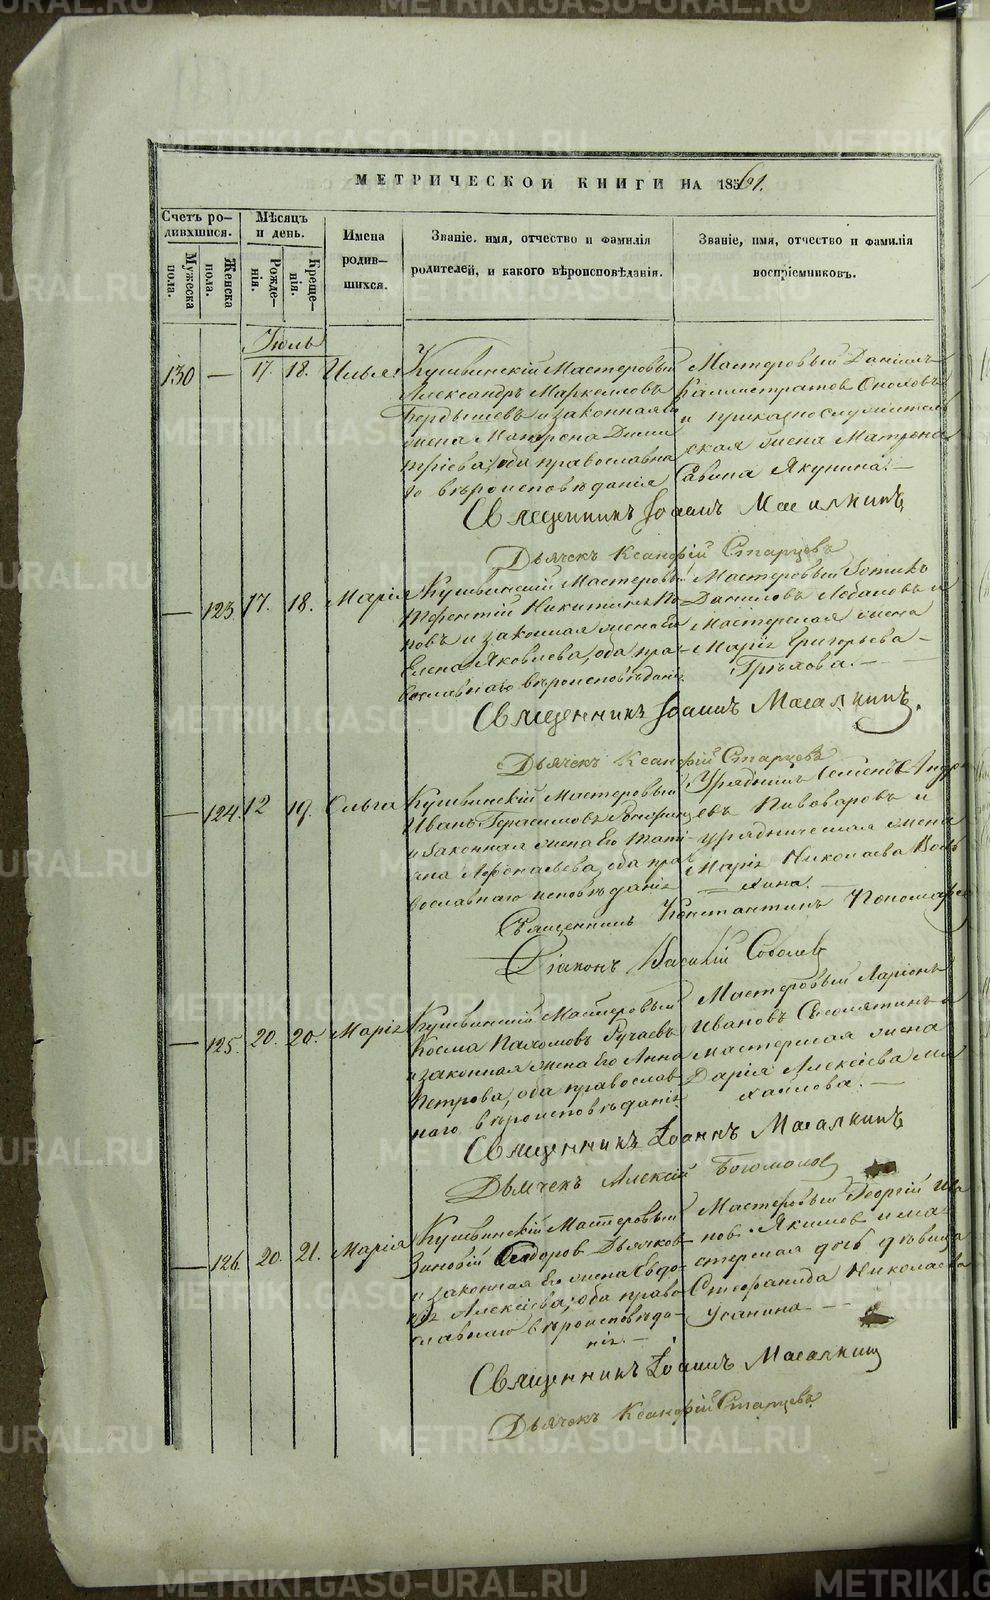 МЕТРИЧЕСКОЙ КНИГИ НА 1861.
Счетъ ро-
дившихся.
Мужеска пола.
Женска пола.
Мѣсяцъ
и день.
Рожде-
нія.
Креще-
нія.
Имена
родив-
шихся.
Званіе, имя, отчество и фамилія
родителей, и какого вѣроисповѣданія.
Званіе, имя, отчество и фамилія
воспріемниковъ.
Іюль
130 — 17. 18. Илья
Кушвинскій Мастеровый
Александръ Маркелловъ
Бердышевъ и законная его
жена Матрона Дими
тріева, оба православна
го вѣроисповѣданія
Мастеровый Даніилъ
Каллистратов
и приказнослужитель
ская жена Матрона
Савина Якунина. —
Священникъ Іоаннъ Масалкинъ
Дьячекъ Ксанфій Старцевъ
— 123. 17. 18. Марія
Кушвинскій Мастеровый
Терентій Никитинъ По
повъ и законная жена Его
Елена Яковлева, оба пра-
вославнаго вѣроисповѣданія.
Мастеровый Фотикъ
Даниловъ Лобановъ и
Мастерская жена
Марія Григорьева
Грѣхова. —
Священникъ Іоаннъ Масалкинъ.
Дьячекъ Ксанфій Старцевъ
— 124. 12 19. Ольга
Кушвинскій Мастеровый
Иванъ Герасимовъ
и Законная жена Его Тати
ана Афонасьева, оба пра
вославнаго исповѣданія
Урядникъ Семенъ Андре
евъ Пивоваровъ и
урядническая жена
Марія Николаева
Священникъ Константинъ Пономарев
Діаконъ Василій Соболевъ
— 125. 20. 20. Марія
Кушвинскій Мастеровый
Косма Пахомовъ Ручаевъ
и законная жена Его Анна
Петрова, оба православ-
наго вѣроисповѣданія
Мастеровый Ларіонъ
Ивановъ и
мастерская жена
Дарія Алексіева Ми
хаилова. —
Священникъ Іоаннъ Масалкинъ
Дьячекъ Алексій Богомолов
— 126. 20. 21. Марія
Кушвинскій Мастеровый
Зиновій Ѳеодоров Дьячков
и законная его жена Евдо
кія Алексіева, оба право
славнаго вѣроисповѣда-
нія. —
Мастеровый Георгій Ива
нов Якимов и ма-
стерская дочь дѣвица
Стефанида Николаева
Усанина —
Священникъ Іоаннъ Масалкинъ
Дьячекъ Ксанфій Старцевъ
METRIKI.GASO-URAL.RU